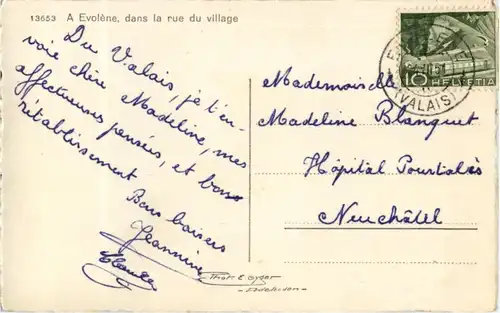 13653 A Evolène, dans la rue du village
Du Valais, je t'en-
voie chère Madeline, mes
affectueuses pensées, et bons
rétablissement.
Bons baisers
Jeannine
10
HELVETIA
(VALAIS)
Mademoiselle
Madeline Blanquet
Hôpital Pourtalès
Neuchâtel
Phot. E. Gyger
- Adelboden -